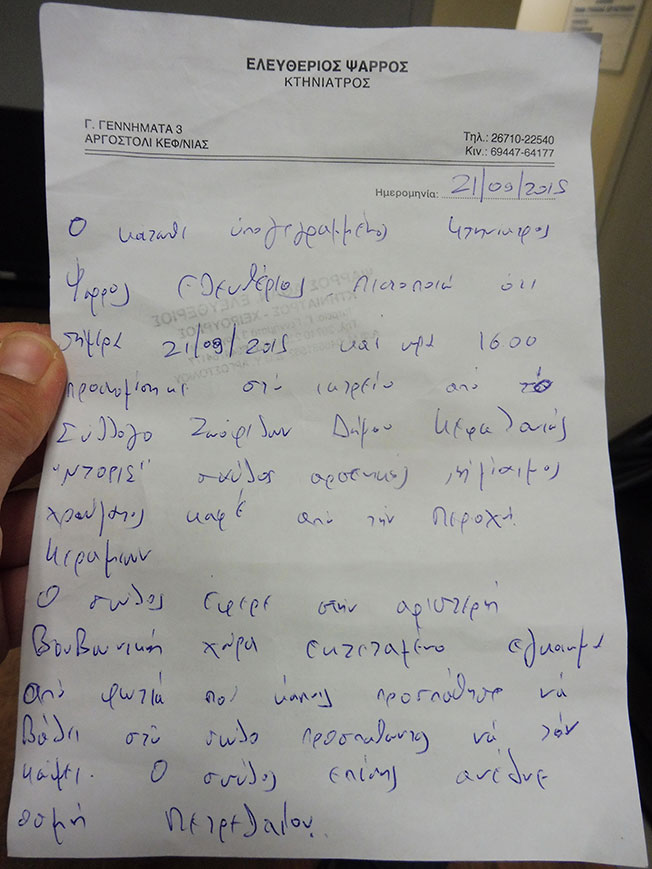 ΕΛΕΥΘΕΡΙΟΣ ΨΑΡΡΟΣ
ΚΤΗΝΙΑΤΡΟΣ
Γ. ΓΕΝΝΗΜΑΤΑ 3
ΑΡΓΟΣΤΟΛΙ ΚΕΦ/ΝΙΑΣ
Τηλ.: 26710-22540
Κιν.: 69447-64177
Ημερομηνία: 21/09/2015
Ο κατωθι υπογεγραμμένος κτηνιατρος
Ψαρρος Ελευθέριος πιστοποιώ ότι
σήμερα 21/09/2015 και ωρα 16 00
προσκομίστηκε στο ιατρείο από το
Σύλλογο Ζωόφιλων Δήμου Κεφαλονιάς
"ΝΤΟΡΙΣ" σκύλος αρσενικός ημίαιμος
χρώματος καφέ από την περιοχή
Κεραμειών
Ο σκύλος έφερε στην αριστερή
Βουβωνική χώρα εκτεταμένο εγκαυμα
από φωτιά που κάποιος προσπάθησε να
βάλει στο σκύλο προσπαθωντας νά τόν
κάψει. Ο σκύλος επίσης ανέδυε
οσμή Πετρελαίου.